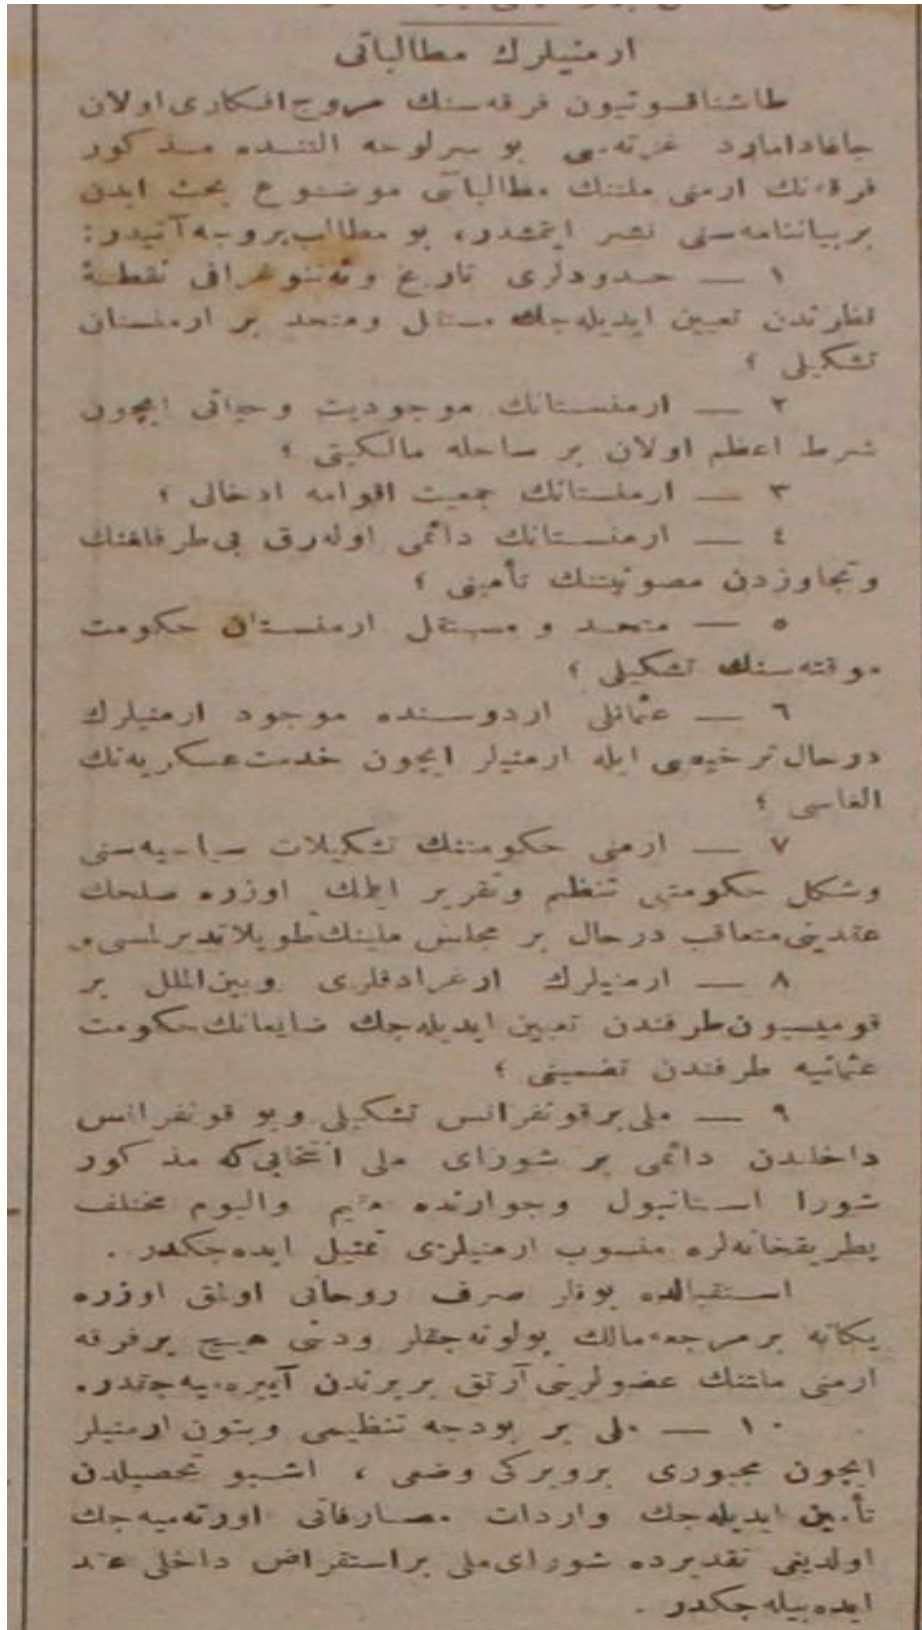 ارمنيلرك مطالباتى
طاشناقسوتيون فرقه‌سنك مروج افكارى اولان
جاغادامارد غزته‌سى بو سرلوحه التنده مذكور
فرقه‌نك ارمنى ملتنك مطالباتى موضوع بحث ايدن
بر بياننامه‌سنى نشر ايتمشدر، بو مطالب بروجه آتيدر:
١ — حدودلرى تاريخ وئه‌تنوغرافى نقطهٔ
نظرندن تعيين ايديله‌جك مستقل ومتحد بر ارمنستان
تشكيلى ؛
٢ — ارمنستانك موجوديت وحياتى ايچون
شرط اعظم اولان بر ساحله مالكيتى ؛
٣ — ارمنستانك جمعيت اقوامه ادخالى ؛
٤ — ارمنستانك دائمى اوله‌رق بى‌طرفلغنك
وتجاوزدن مصونيتنك تأمينى ؛
٥ — متحد و مستقل ارمنستان حكومت
موقته‌سنك تشكيلى ؛
٦ — عثمانلى اردوسنده موجود ارمنيلرك
درحال ترخيصى ايله ارمنيلر ايچون خدمت عسكريه‌نك
الغاسى ؛
٧ — ارمنى حكومتنك تشكيلات سياسيه‌سنى
وشكل حكومتى تنظيم وتقرير ايتمك اوزره صلحك
عقدينى متعاقب درحال بر مجلس ملينك طوپلانديرلمسى
٨ — ارمنيلرك اوغرادقلرى وبين‌الملل بر
قوميسيون طرفندن تعيين ايديله‌جك ضايعاتك حكومت
عثمانيه طرفندن تضمينى ؛
٩ — ملى بر قونفرانس تشكيلى وبو قونفرانس
داخلندن دائمى بر شوراى ملى انتخابى كه مذكور
شورا استانبول وجوارنده مقيم واليوم مختلف
پطريقخانه‌لره منسوب ارمنيلرى تمثيل ايده‌جكدر .
استقبالده بونلر صرف روحانى اولمق اوزره
يكانه بر مرجعه مالك بولونه‌جقلر ودينى هيچ بر فرقه
ارمنى ملتنك عضولرينى آرتق بربرندن آييره‌ميه‌جقدر.
١٠ — ملى بر بودجه تنظيمى وبتون ارمنيلر
ايچون مجبورى بر ويركى وضعى ، اشبو تحصيلدن
تأمين ايديله‌جك واردات مصارفاتى اورته‌ميه‌جك
اولدينى تقديرده شوراى ملى بر استقراض داخلى عقد
ايده‌بيله‌جكدر .